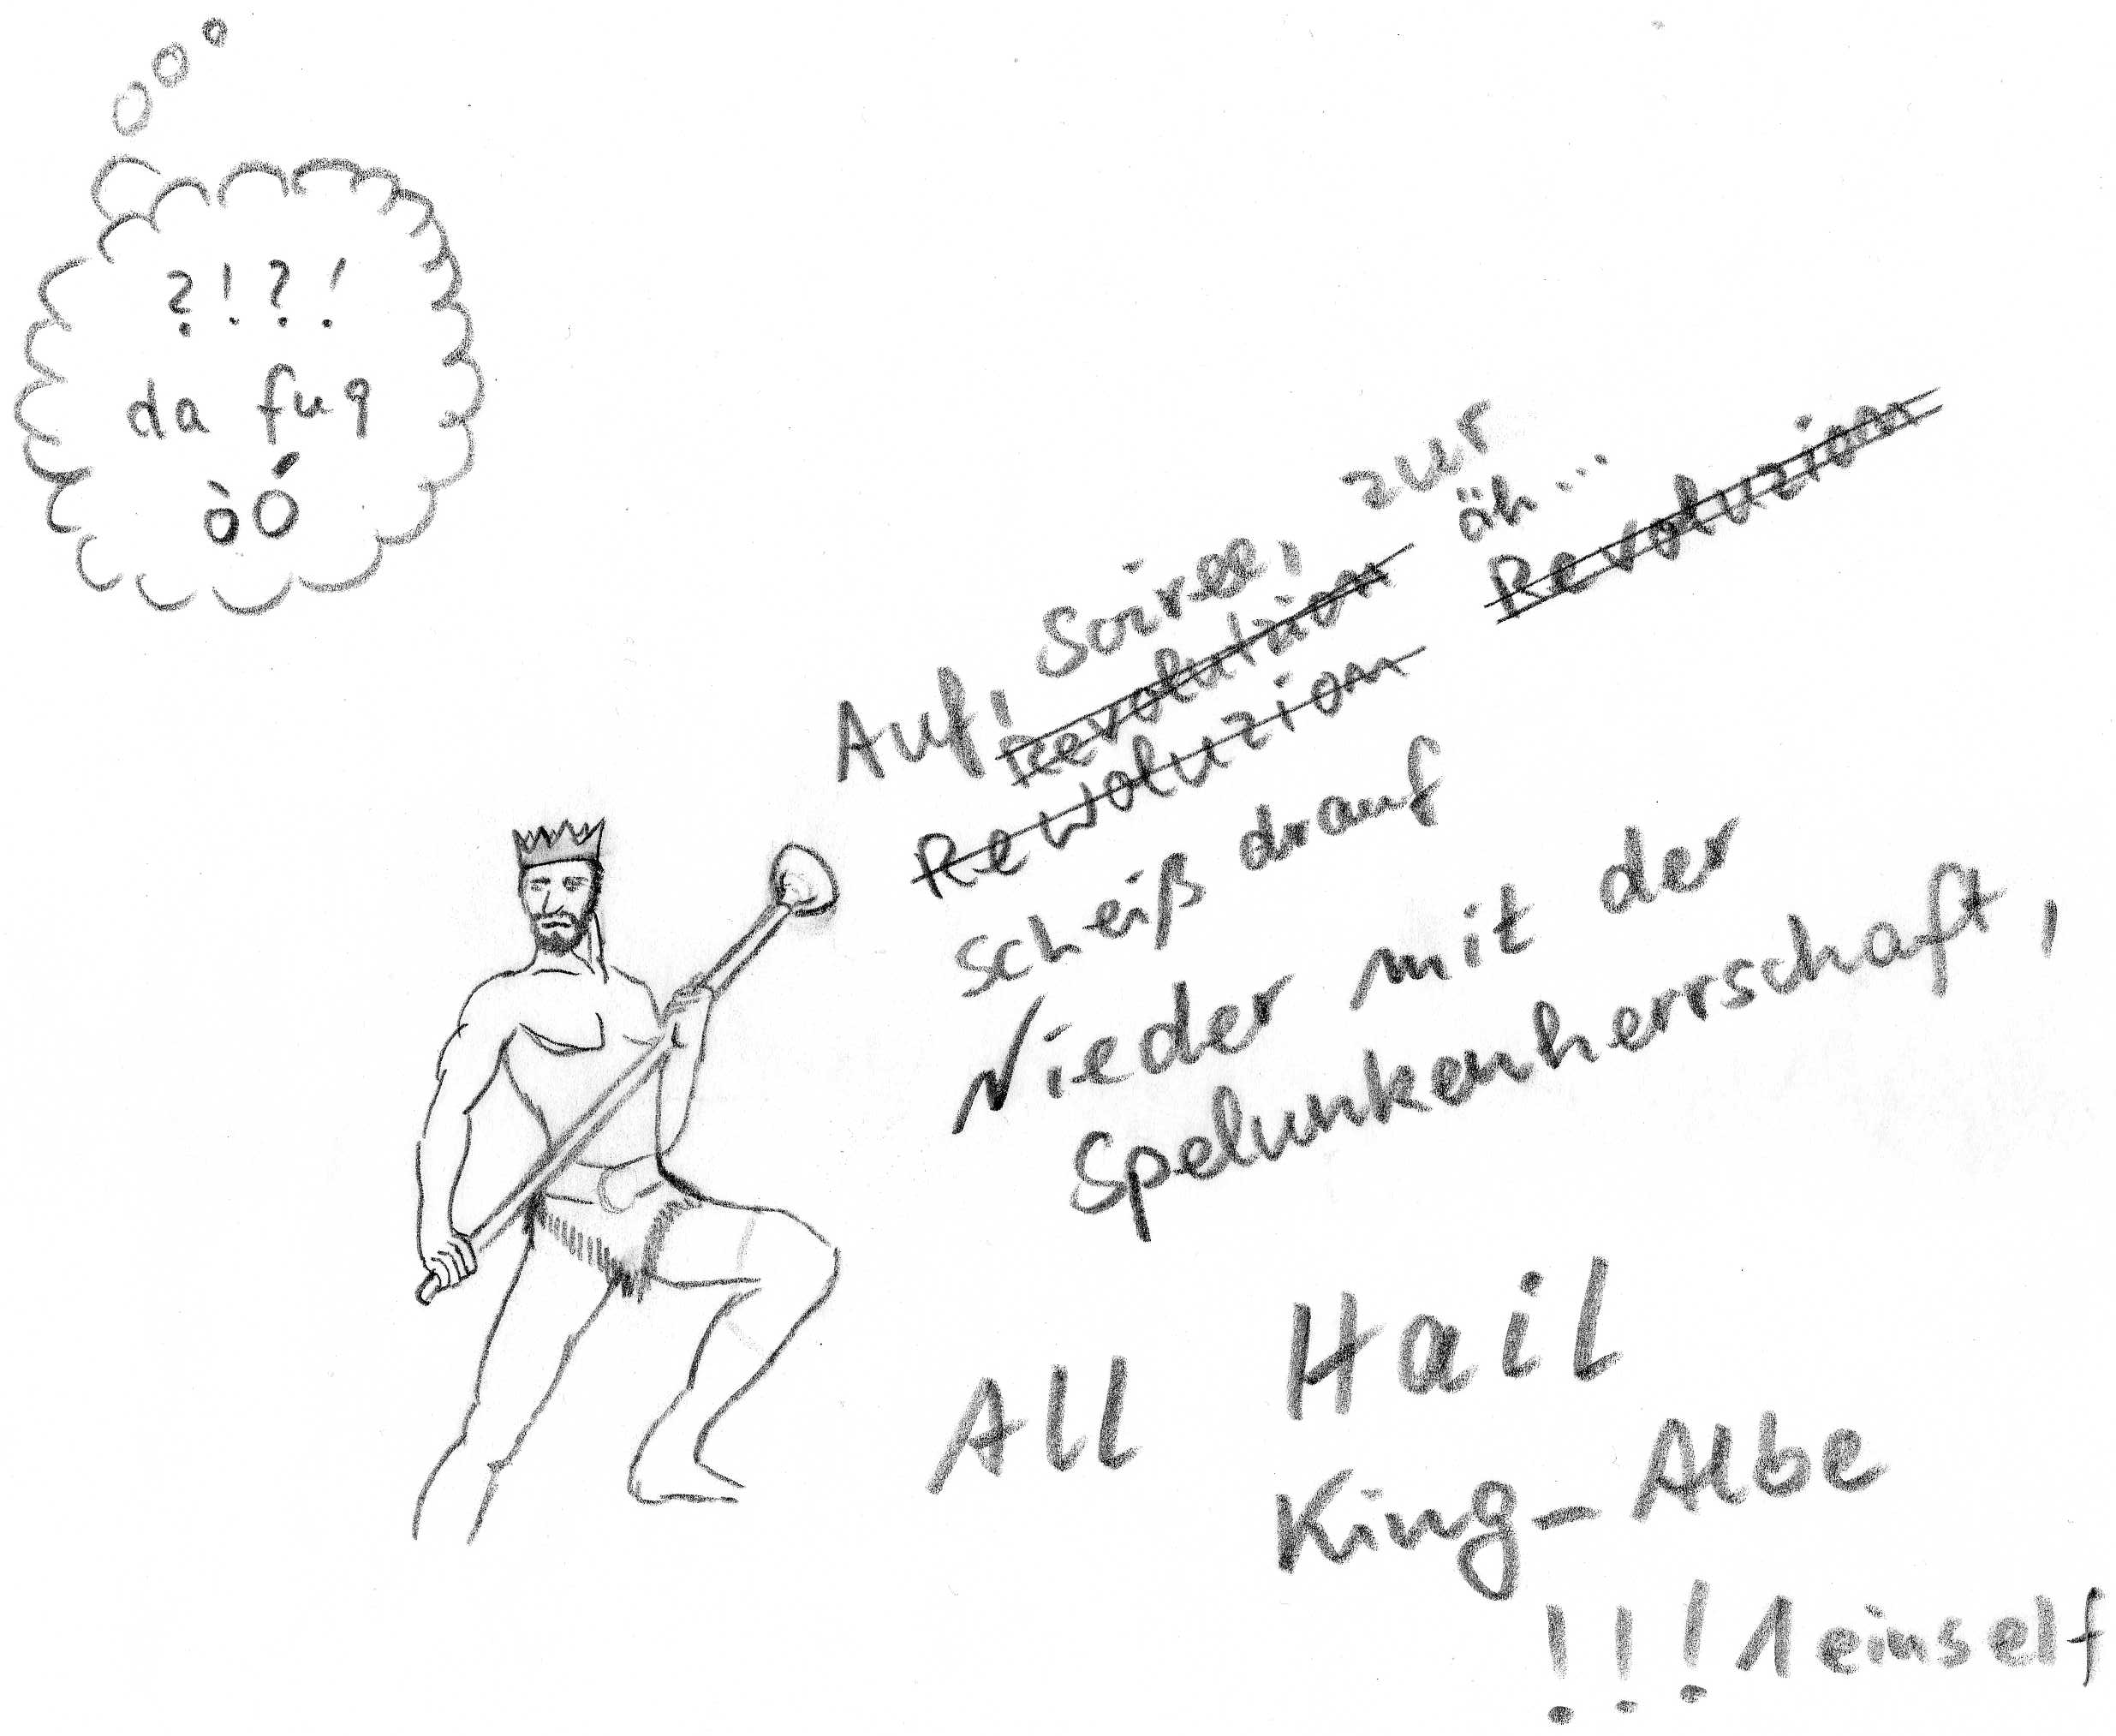 ?!?!
da fuq
òÓ
Auf, Soiree, zur
öh...
Revolutzion Revoluzion
Rewoluzion
scheiß drauf
Nieder mit der
Spelunkenherrschaft,
All Hail
King-Albe
!!!1einself